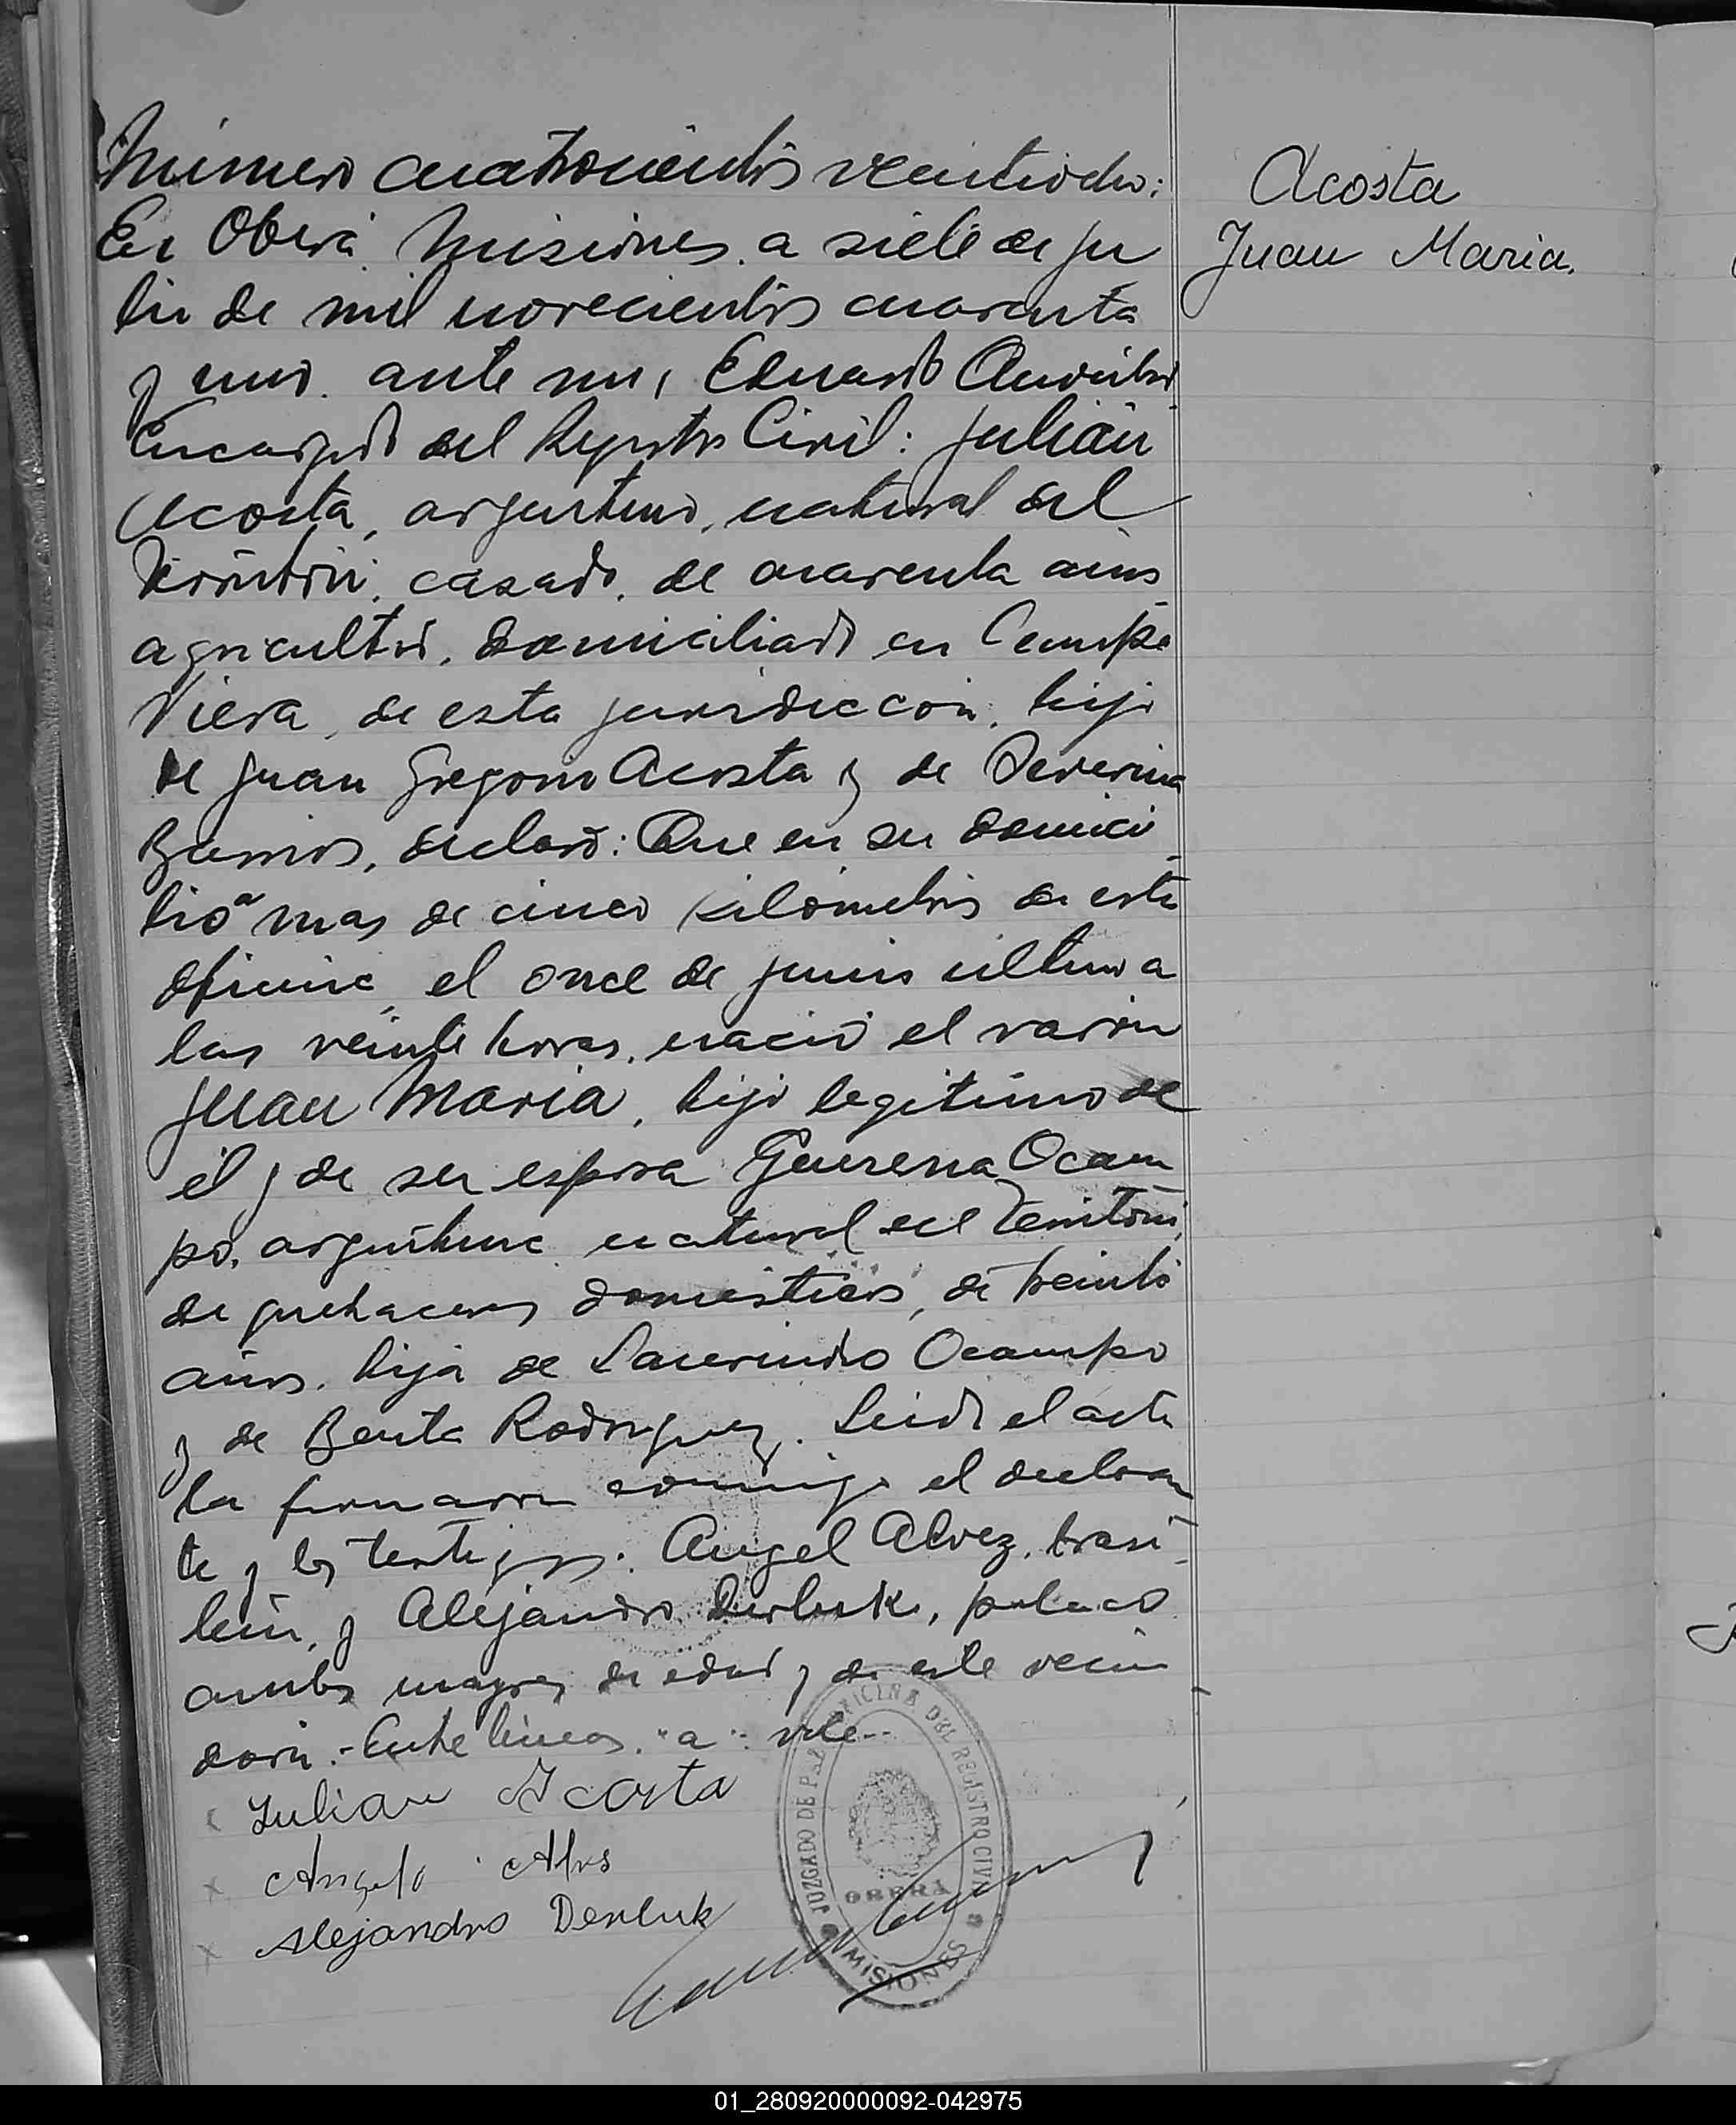 Número cuatrocientos veintiocho:
En Oberá, Misiones, a siete de ju
lio de mil novecientos cuarenta
y uno, ante mi, Eduardo
Encargado del Registro Civil: Julián
Acosta, argentino, natural del
Territorio, casado, de cuarenta años
agricultor, domiciliado en Campo
Viera, de esta jurisdicción, hijo
de Juan Gregorio Acosta y de Severina
Barrios, declaró: Que en su domici
lio a mas de cinco kilómetros de esta
oficina, el once de junio último a
las veinte horas, nació el varón
Juan Maria, hijo legítimo de
él y de su esposa Ocam
po, argentina natural del Territorio,
de quehaceres domésticos, de treinta
años, hija de Laurindo Ocampo
y de Benita Rodriguez. Leida el acta
la firmaron conmigo el declaran
te y los testigos: Angel Alvez, brasi
lero, y Alejandro Derluk, polaco
ambos mayores de edad y de este vecin
dario.- Entre lineas: "a": vale--
Julian Acosta
Angelo Alves
Alejandro Derluk
Acosta
Juan Maria.
JUZGADO DE PAZ OFICINA DEL REGISTRO CIVIL
OBERÁ
MISIONES
01_280920000092-042975